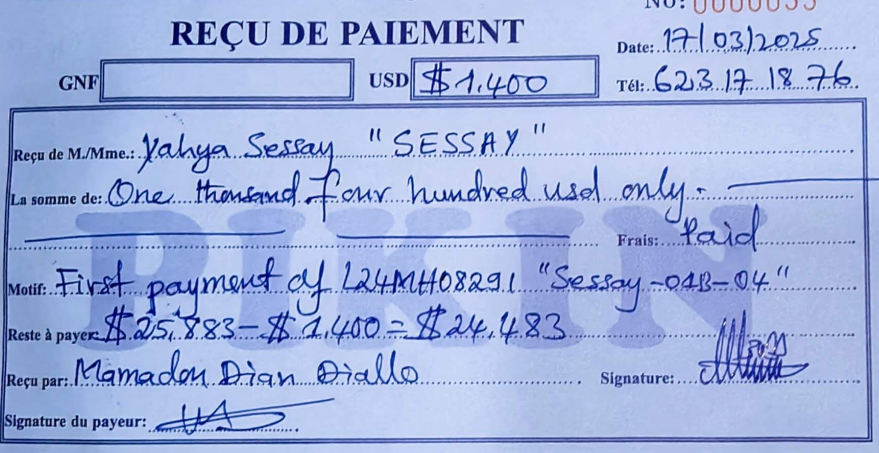 No: 0000055
REÇU DE PAIEMENT
Date: 17/03/2025
GNF
USD $1.400
Tél: 623 17 18 76
Reçu de M./Mme.: Yahya Sessay "SESSAY"
La somme de: One thousand four hundred usd only.
Frais: Paid
PIKIN
Motif: First payment of L24MH08291 "Sessay-01B-04"
Reste à payer: $25,883-$1.400=$24.483
Reçu par: Mamadou Dian Diallo
Signature:
Signature du payeur: